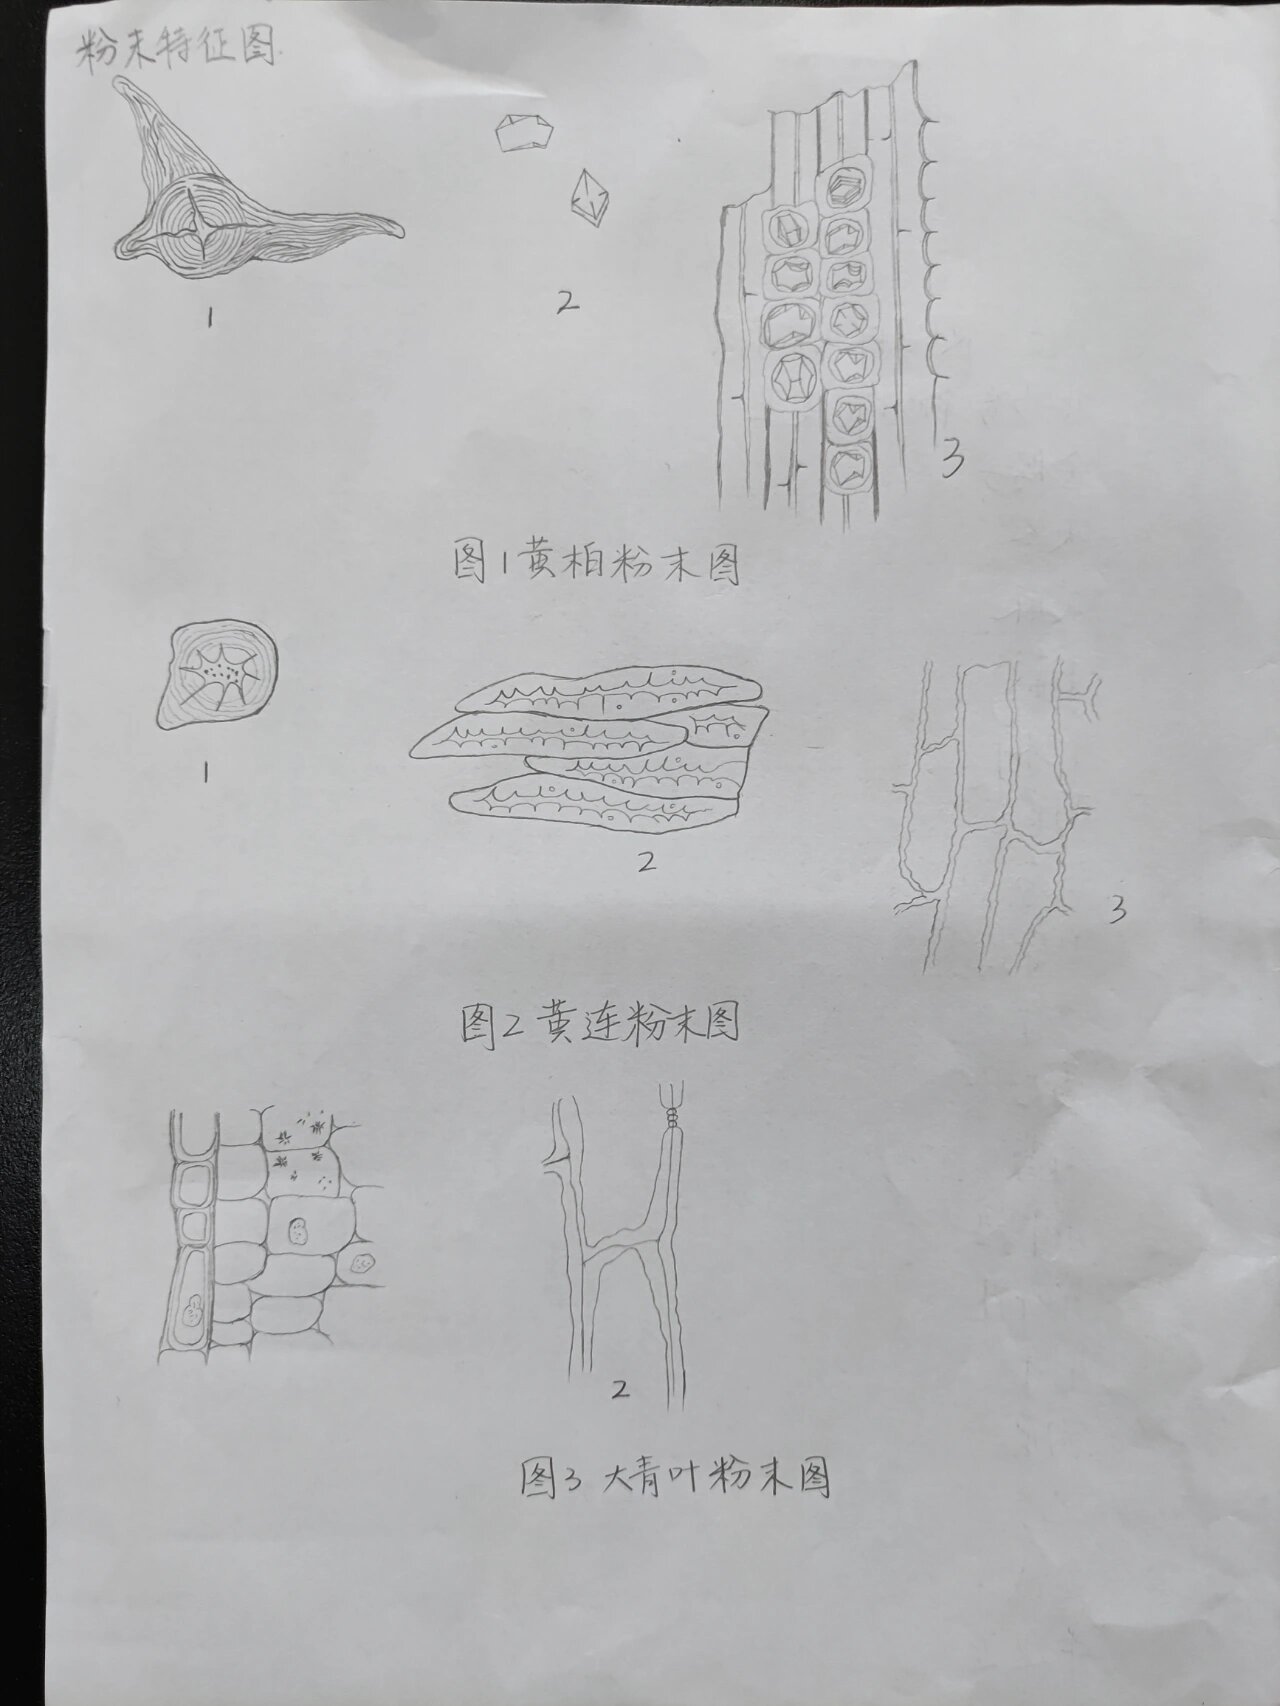 粉末特征图.
1
2
3
图1黄柏粉末图
1
2
3
图2黄连粉末图
2
图3大青叶粉末图